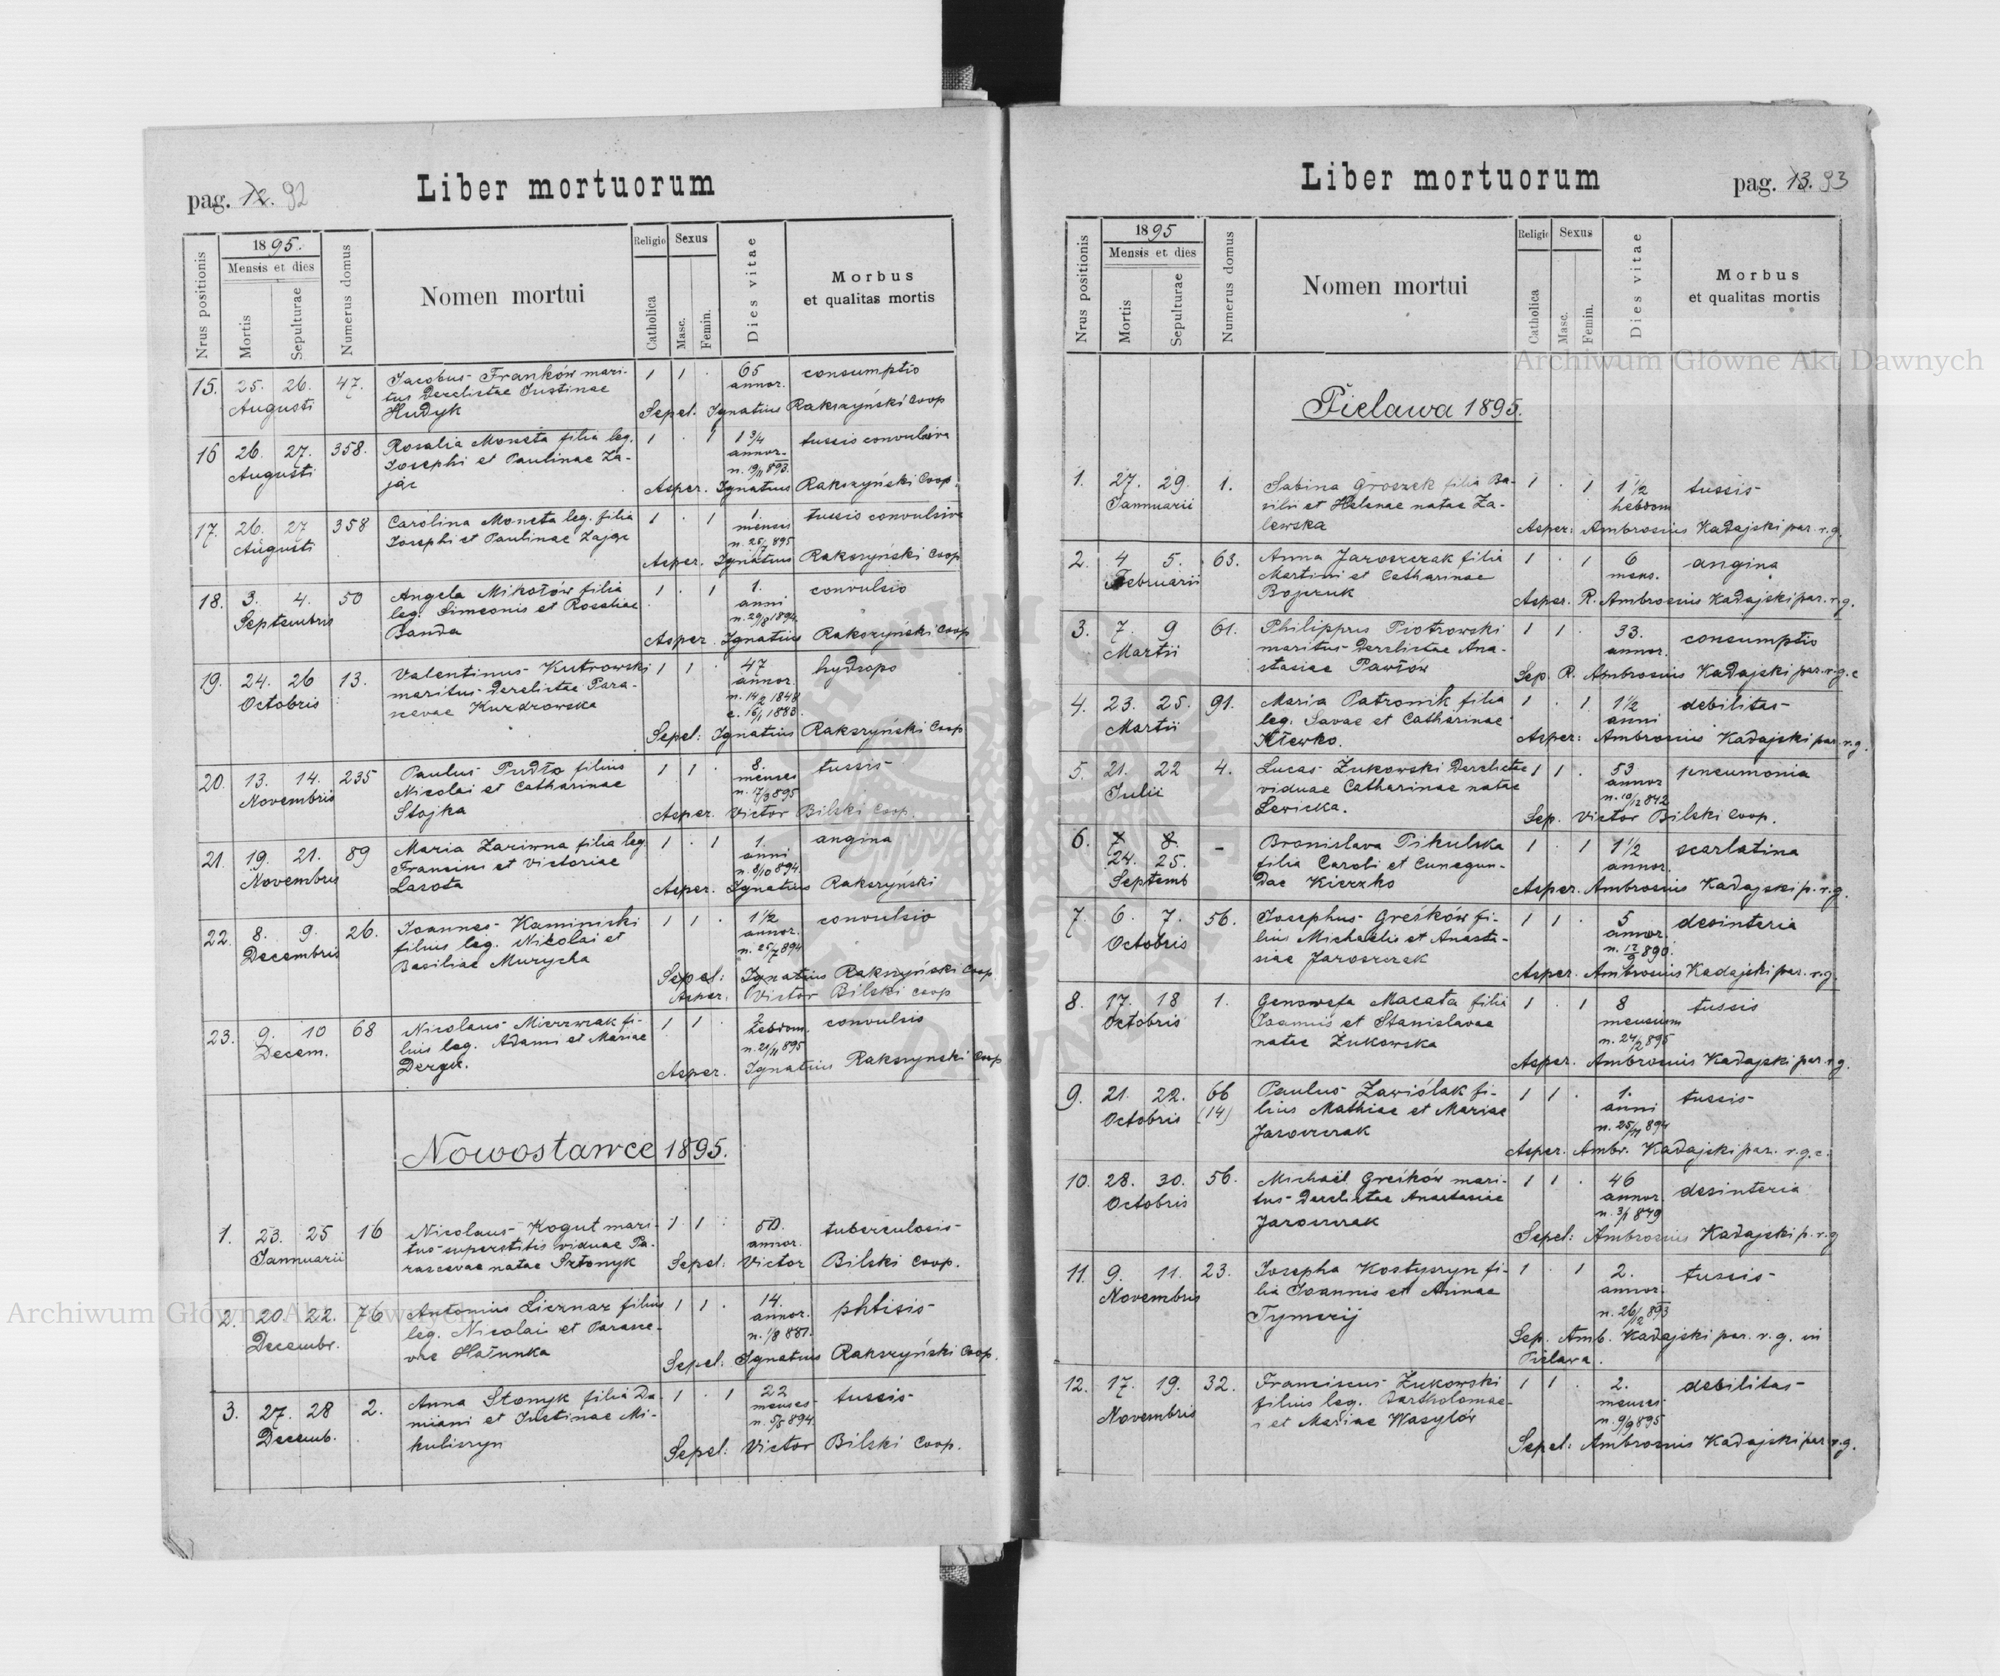 pag. 12. 92
Liber mortuorum
Nrus positionis
1895.
Mensis et dies
Mortis
Sepulturae
Numerus domus
Nomen mortui
Religio
Catholica
Sexus
Masc.
Femin.
Dies vitae
Morbus
et qualitas mortis
15. 25. 26. 47. Jacobus Franków mari- 1 1 . 65 consumptio
Augusti tus Derelictae Justinae annor.
Hudyk Sepel. Ignatius Rakszyński Coop
16 26. 27. 358. Rosalia Moneta filia leg. 1 . 1 1 3/4 tussis convulsiva
Augusti Josephi et Paulinae Za- annor.
n. 19/11 893.
jąc Asper. Ignatius Rakszyński Coop.
17. 26. 27 358 Carolina Moneta leg. filia 1 . 1 1. tussis convulsiva
Augusti Josephi et Paulinae Zając menses
n. 25/7 895
Asper. Ignatius Rakszyński Coop
18. 3. 4. 50 Angela Mikołów filia 1 . 1 1. convulsio
Septembris leg. Simeonis et Rosaliae anni
n. 29/8 1894.
Banda Asper. Ignatius Rakszyński Coop
19. 24. 26 13. Valentinus Kutrowski 1 1 . 47 hydrops
Octobris maritus Derelictae Para- annor.
n. 14/2 1848
scevae Kurdrowska c. 16/1 1883.
Sepel: Ignatius Rakszyński Coop
20. 13. 14. 235 Paulus Pudło filius 1 1 . 8. tussis
Novembris Nicolai et Catharinae menses
n. 17/3 895
Stojka Asper. Victor Bilski Coop.
21. 19. 21. 89 Maria Zarivna filia leg. 1 . 1 1. angina
Novembris Francisci et Victoriae anni
n. 8/10 894.
Lasota Asper. Ignatius Rakszyński
22. 8. 9. 26. Joannes Kaminiski 1 1 . 1 1/2 convulsio
Decembris filius leg. Nicolai et annor.
n. 25/7 894
Basiliae Murycha
Sepel: Ignatius Rakszyński Coop
Asper. Victor Bilski Coop
23. 9. 10 68 Nicolaus Mierzwiak fi- 1 1 . 2 convulsio
Decem. lius leg. Adami et Mariae hebdom.
n. 21/11 895
Dergał. Asper. Ignatius Rakszynski Coop
Nowostawce 1895.
1. 23. 25 16 Nicolaus Kogut mari- 1 1 . 50. tuberculosis
Jannuarii tus superstitis viduae Pa- annor.
rascevae natae Sztonyk Sepel: Victor Bilski Coop.
2. 20. 22. 76 Antonius Licznar filius 1 1 . 14. phtisis
Decembr. leg. Nicolai et Parasce- annor.
n. 1/8 881.
vae Hałunka Sepel: Ignatius Rakszyński Coop.
3. 27. 28 2. Anna Stonyk filia Da- 1 . 1 22 tussis
Decemb. miani et Justinae Mi- menses
n. 5/3 894.
kuliczyn Sepel: Victor Bilski Coop.
Liber mortuorum
pag. 13. 93
Nrus positionis
1895
Mensis et dies
Mortis
Sepulturae
Numerus domus
Nomen mortui
Religio
Catholica
Sexus
Masc.
Femin.
Dies vitae
Morbus
et qualitas mortis
Pielawa 1895.
1. 27. 29. 1. Sabina Groszek filia Ba- 1 . 1 1 1/2 tussis
Jannuarii silii et Helenae natae Za- hebdom
lewska Asper: Ambrosius Kadajski par. r.g.
2. 4 5. 63. Anna Jaroszczak filia 1 . 1 6 angina
Februarii Martini et Catharinae mens.
Bojczuk Asper. R. Ambrosius Kadajski par. r.g.
3. 7. 9 61. Philippus Piotrowski 1 1 . 33. consumptio
Martii maritus Derelictae Ana- annor.
stasiae Pawłów Sep. R. Ambrosius Kadajski par. r.g.c
4. 23. 25. 91. Maria Patronik filia 1 . 1 1 1/2 debilitas
Martii leg. Savae et Catharinae anni
Klewko. Asper: Ambrosius Kadajski par. r.g.
5. 21. 22 4. Lucas Żukowski Derelictae 1 1 . 53 pneumonia
Julii viduae Catharinae natae annor
n. 10/12 842
Lewicka. Sep. Victor Bilski Coop.
6. 7 8. – Bronislava Pikulska 1 . 1 1 1/2 scarlatina
24. 25. filia Caroli et Cunegun- annor.
Septemb dae Kierzko Asper. Ambrosius Kadajski p. r.g.
7. 6. 7. 56. Josephus Greśków fi- 1 1 . 5 desinteria
Octobris lius Michaelis et Anasta- annor.
siae Jaroszczak
Asper. Ambrosius Kadajski par. r.g.
8. 17. 18 1. Genowefa Macała filia 1 . 1 8 tussis
Octobris Joannis et Stanislavae mensium
n. 24/2 895
natae Żukowska
Asper. Ambrosius Kadajski par. r.g.
9. 21. 22. 66 Paulus Zawiślak fi- 1 1 . 1. tussis
Octobris (14) lius Mathiae et Mariae anni
n. 25/11 894
Jaroszczak
Asper. Ambr. Kadajski par. r.g.c.
10. 28. 30. 56. Michaël Greśków mari- 1 1 . 46 desinteria
Octobris tus Derelictae Anastasiae annor.
n. 3/1 849
Jaroszczak
Sepel: Ambrosius Kadajski p. r.g
11. 9. 11. 23. Josepha Kostyszyn fi- 1 . 1 2. tussis
Novembris lia Joannis et Annae annor.
n. 26/12 893
Tymczij
Sep. Amb. Kadajski par. r.g. in
Pielawa.
12. 17. 19. 32. Franciscus Żukowski 1 1 . 2. debilitas
Novembris filius leg. Bartholomae- menses
n. 9/9 895
i et Mariae Wasylów
Sepel: Ambrosius Kadajski par. r.g.
Archiwum Główne Akt Dawnych
Archiwum Główne Akt Dawnych